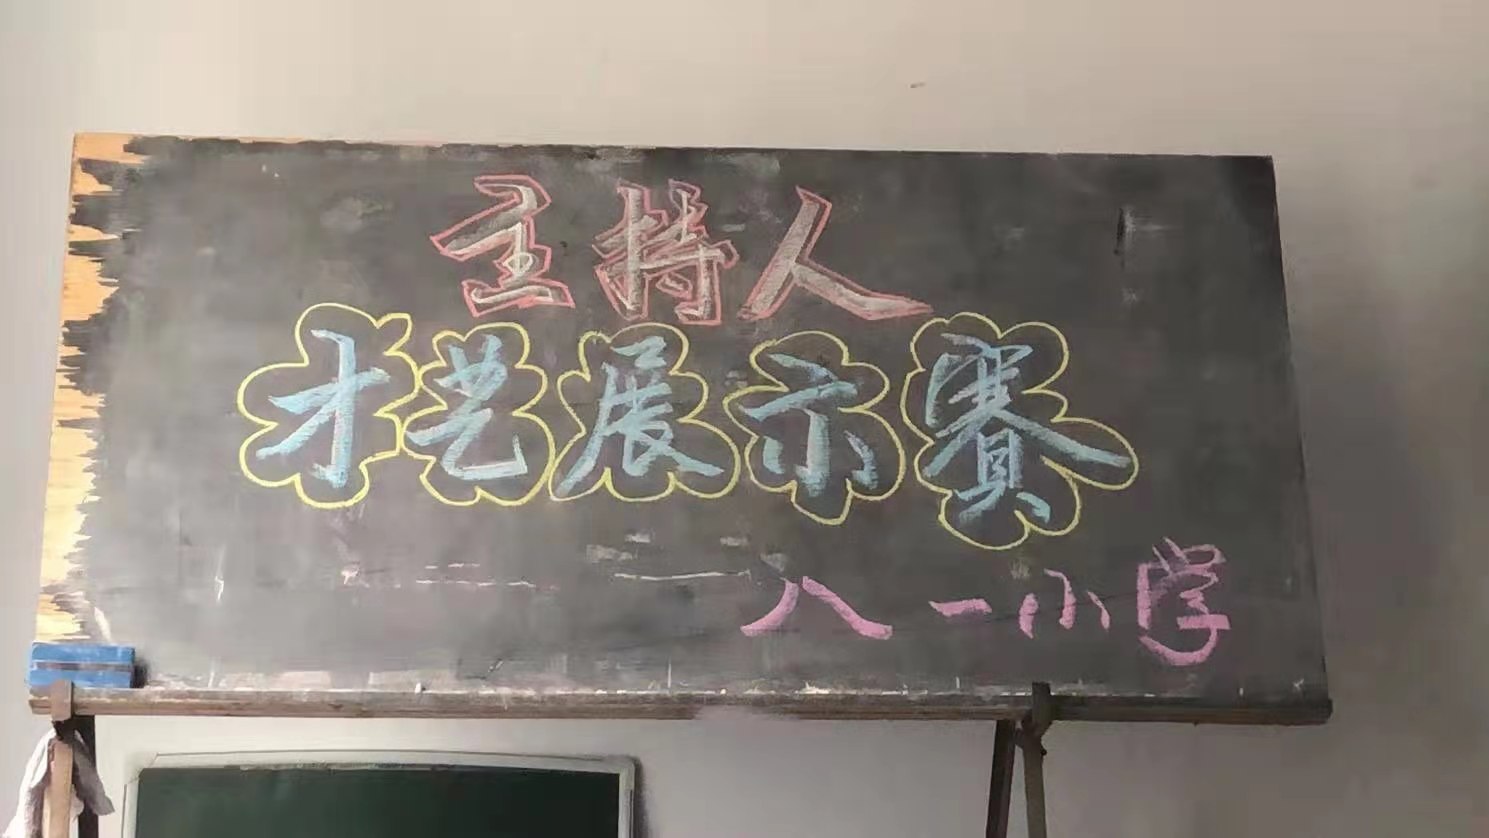 主持人
才艺展示赛
八一小学